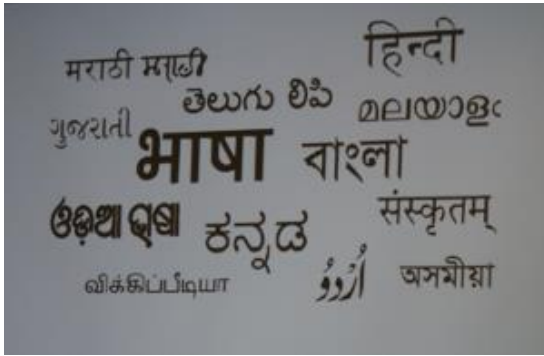 मराठी मराठी
हिन्दी
తెలుగు లిపి
മലയാളം
ગુજરાતી
भाषा
বাংলা
ଓଡ଼ିଆ ଭାଷା
ಕನ್ನಡ
संस्कृतम्
விக்கிப்பீடியா
اُرْدُوُ
অসমীয়া